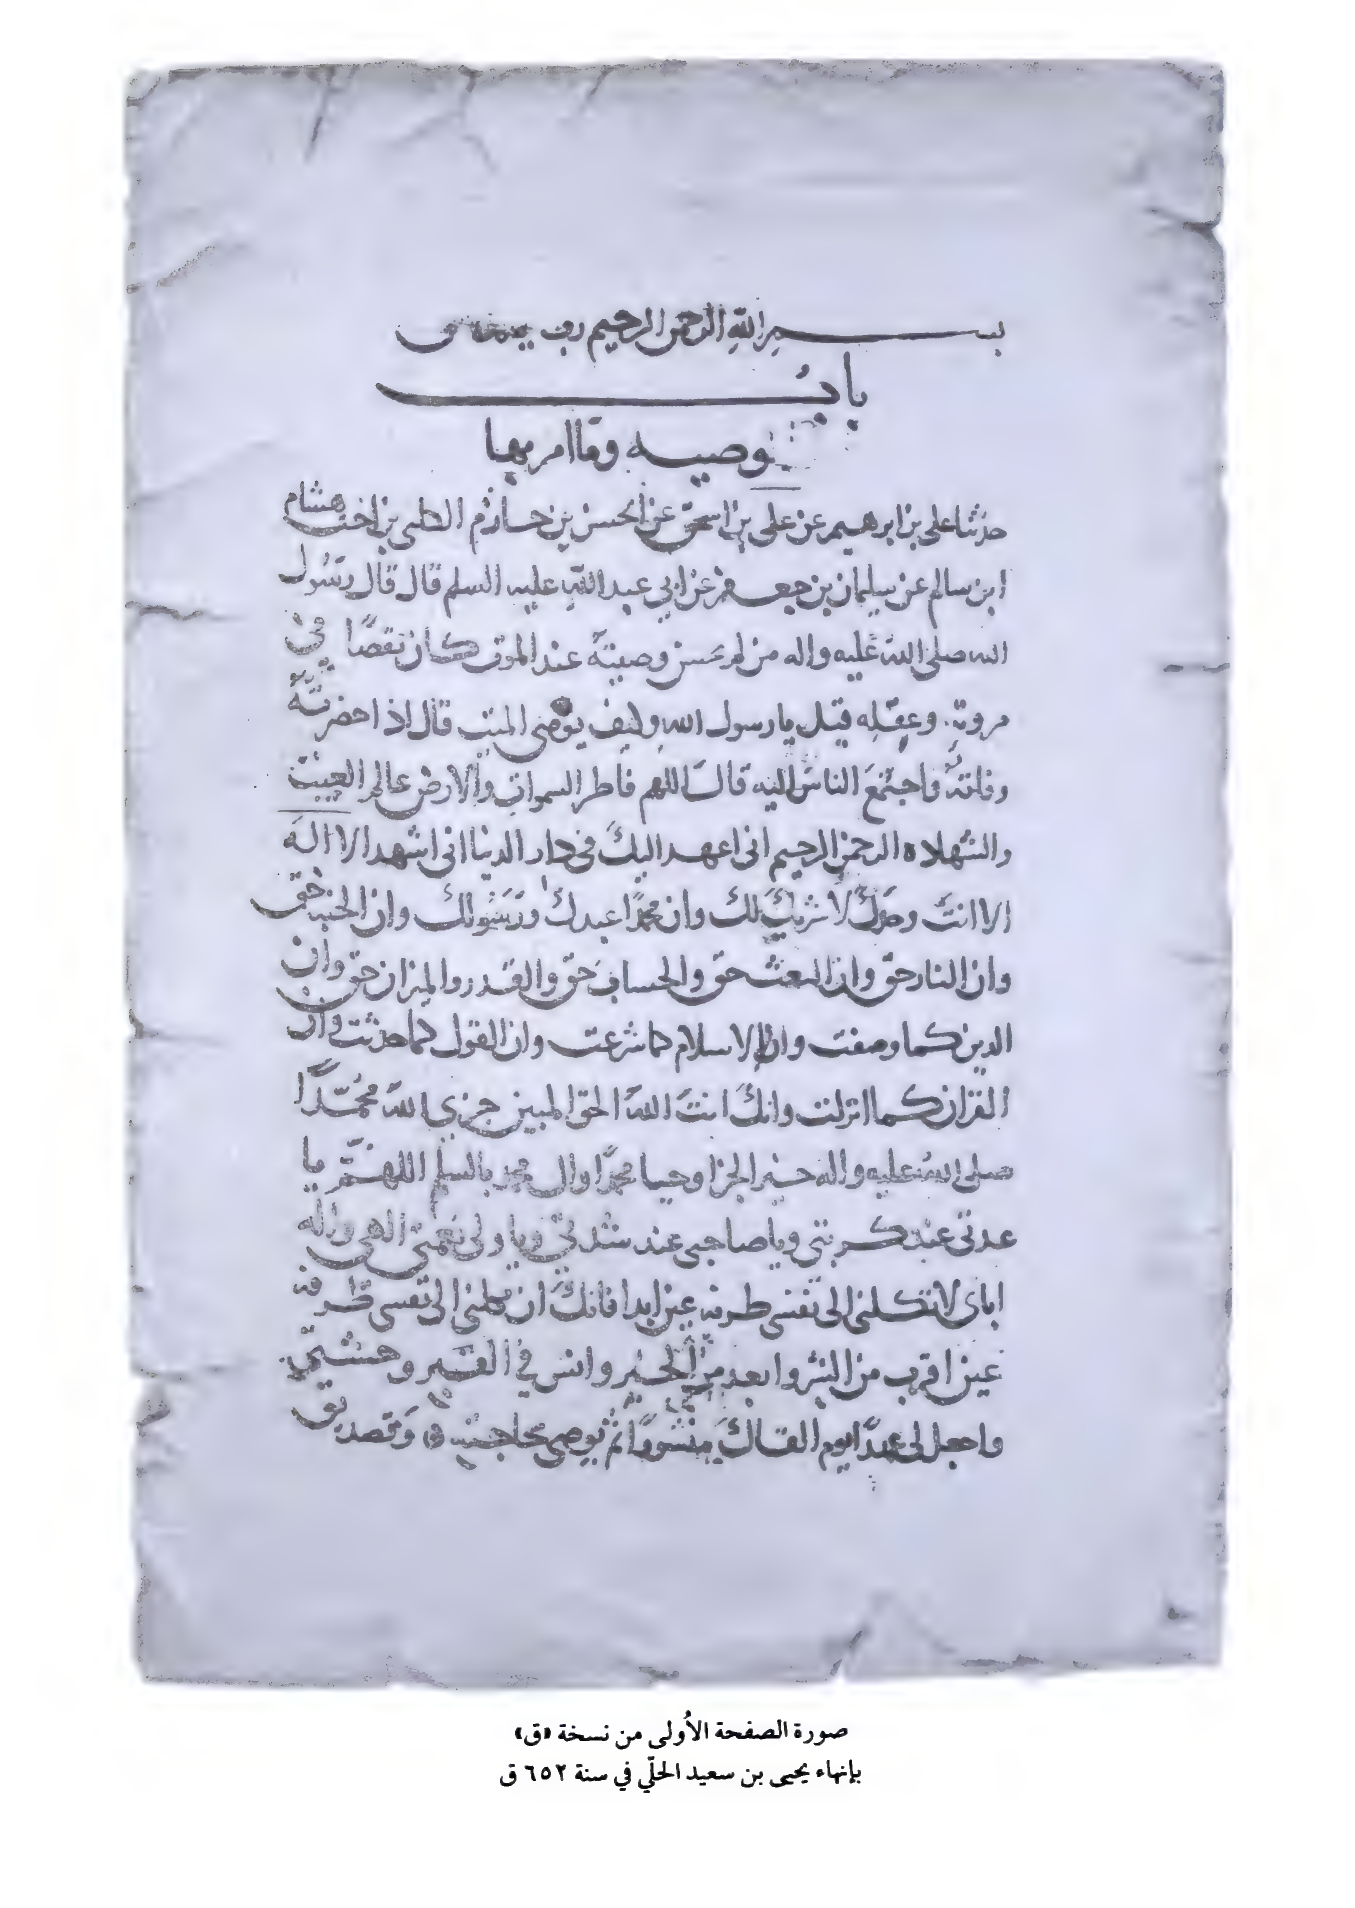 بسم الله الرحمن الرحيم رب
باب
الوصيه وما امر بها
حدثنا على بن ابرهيم عن على بن اسحق عن الحسن بن حازم الكلبى بن اخت هشام
ابن سالم عن سليمان بن جعفر عن ابي عبد الله عليه السلم قال قال رسول
الله صلى الله عليه واله من لم يحسن وصيته عند الموت كان نقصا فى
مروته وعقله قيل يا رسول الله وكيف يوصى الميت قال اذا حضرته
وفاته واجتمع الناس اليه قال اللهم فاطر السموات والارض عالم الغيب
والشهاده الرحمن الرحيم انى اعهد اليك فى دار الدنيا انى اشهد الا اله
الا انت وحدك لا شريك لك وان محمدا عبدك ورسولك وان الجنه حق
وان النار حق وان البعث حق والحساب حق والقدر والميزان حق وان
الدين كما وصفت وان الاسلام كما شرعت وان القول كما حدثت وان
القران كما انزلت وانك انت الله الحق المبين جزى الله محمدا
صلى الله عليه واله خير الجزا وحيا محمدا وال محمد بالسلم اللهم يا
عدتى عند كربتى ويا صاحبى عند شدتى ويا ولى نعمتى الهى واله
اباى لا تكلنى الى نفسى طرفه عين ابدا فانك ان تكلنى الى نفسى طرفه
عين اقرب من الشر وابعد من الخير وانس فى القبر وحشتى
واجعل لى عهدا يوم القاك منشورا ثم يوصى بحاجته وتصديق
صورة الصفحة الأولى من نسخة «ق»
بإنهاء يحيى بن سعيد الحلّي في سنة ٦٥٢ ق